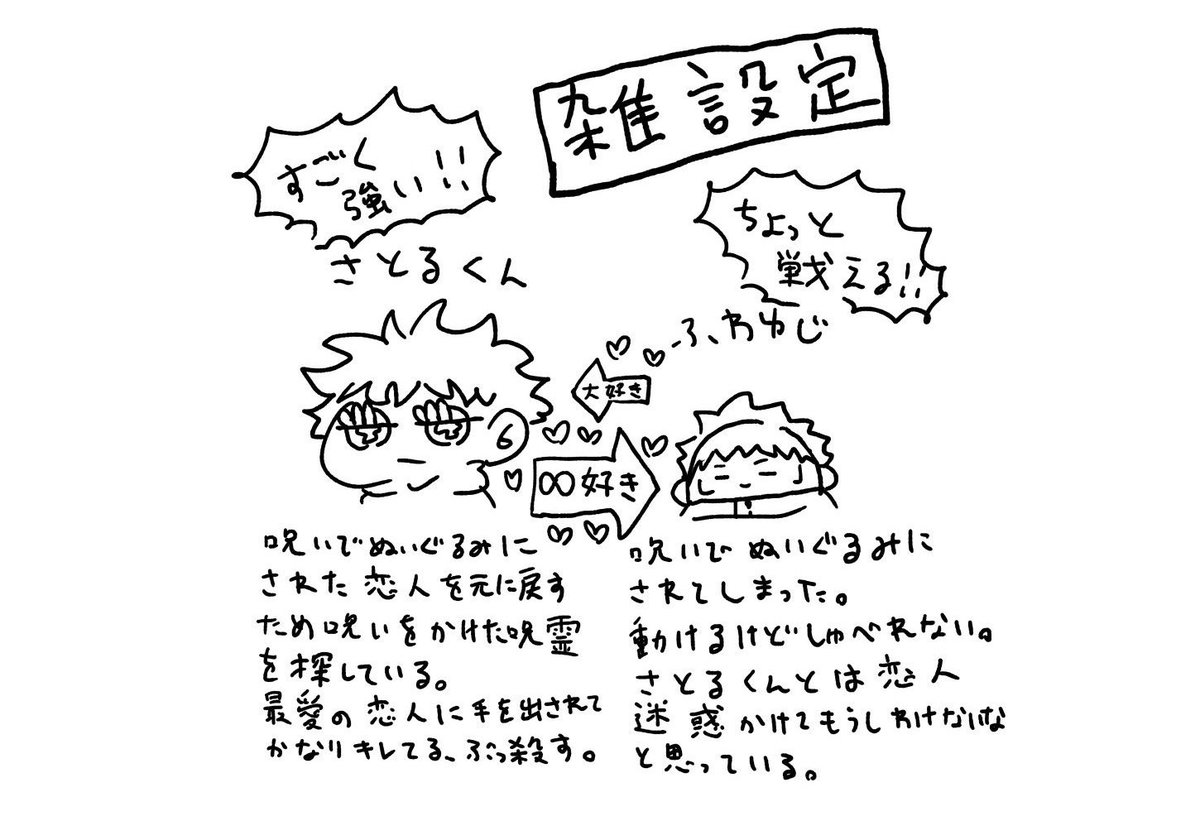 雑設定
すごく
強い!!
さとるくん
ちょっと
戦える!!
ふわゆじ
大好き
∞好き
呪いでぬいぐるみに
された恋人を元に戻す
ため呪いをかけた呪霊
を探している。
最愛の恋人に手を出されて
かなりキレてる、ぶっ殺す。
呪いでぬいぐるみに
されてしまった。
動けるけどしゃべれない。
さとるくんとは恋人
迷惑かけてもうしわけないな
と思っている。